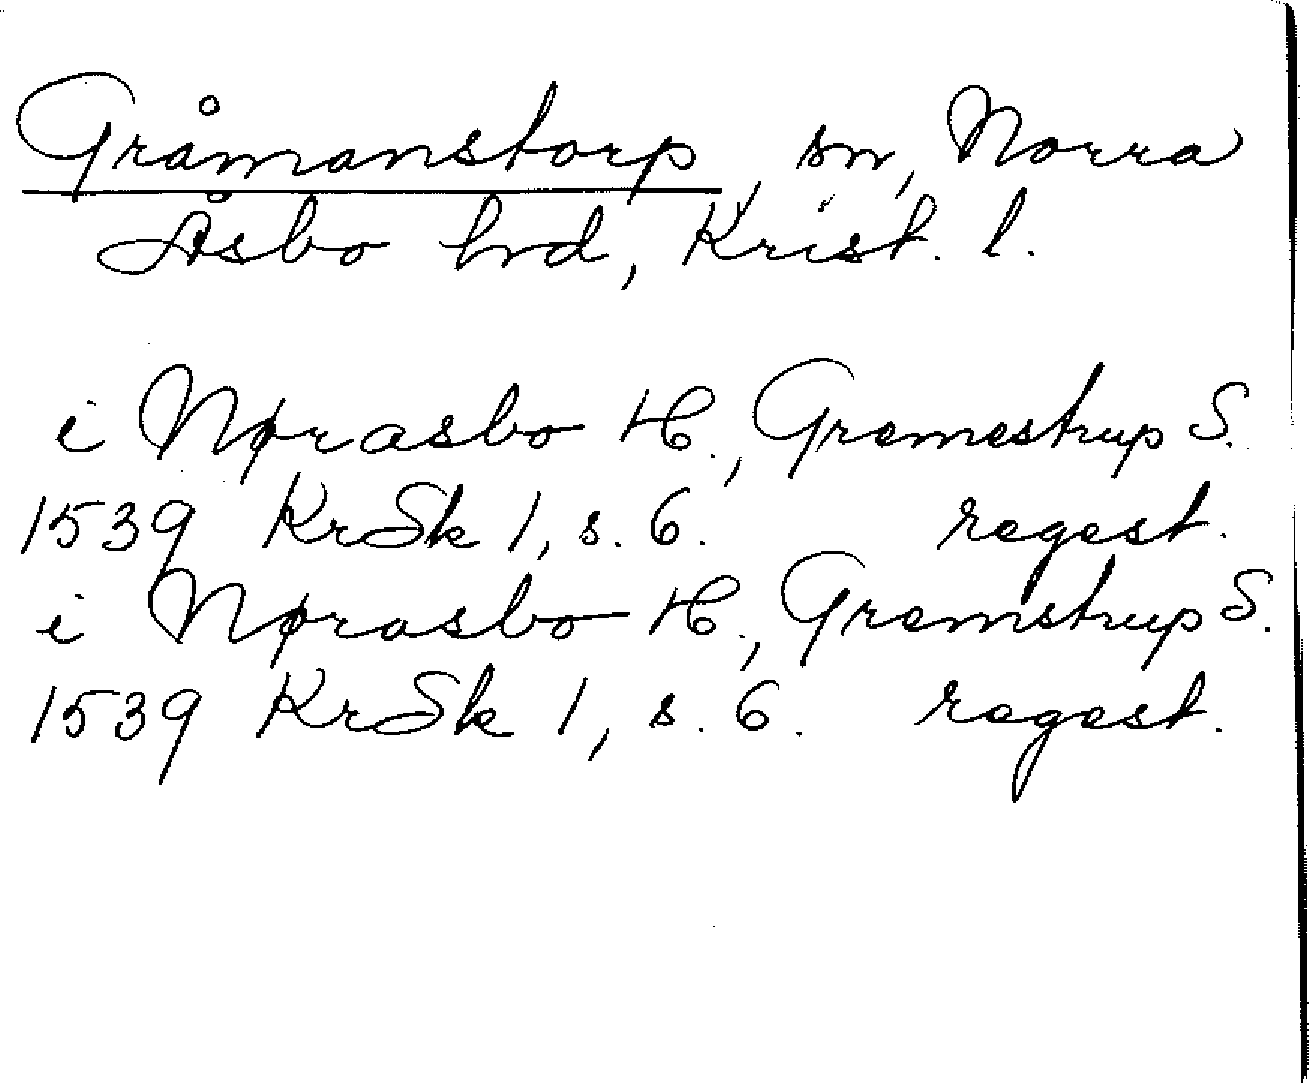 Gråmanstorp, sn, Norra
Åsbo hrd, Krist. l.
i Nørasbo H., Gremestrup S.
1539 KrSk 1, s. 6. regest.
i Nørasbo H., Gremstrup S.
1539 KrSk 1, s. 6. regest.